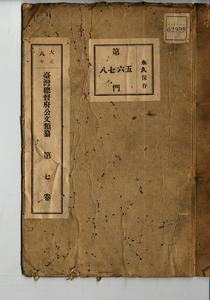 第
八七六五
門
永久保存
大正八年
臺灣總督府公文類纂 第七卷